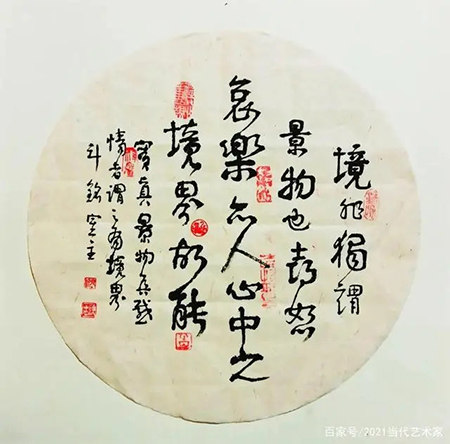 境非獨謂
景物也喜怒
哀樂亦人心中之
境界故能
寫真景物真感
情者謂之有境界
斗銘室主
百家号/2021当代艺术家